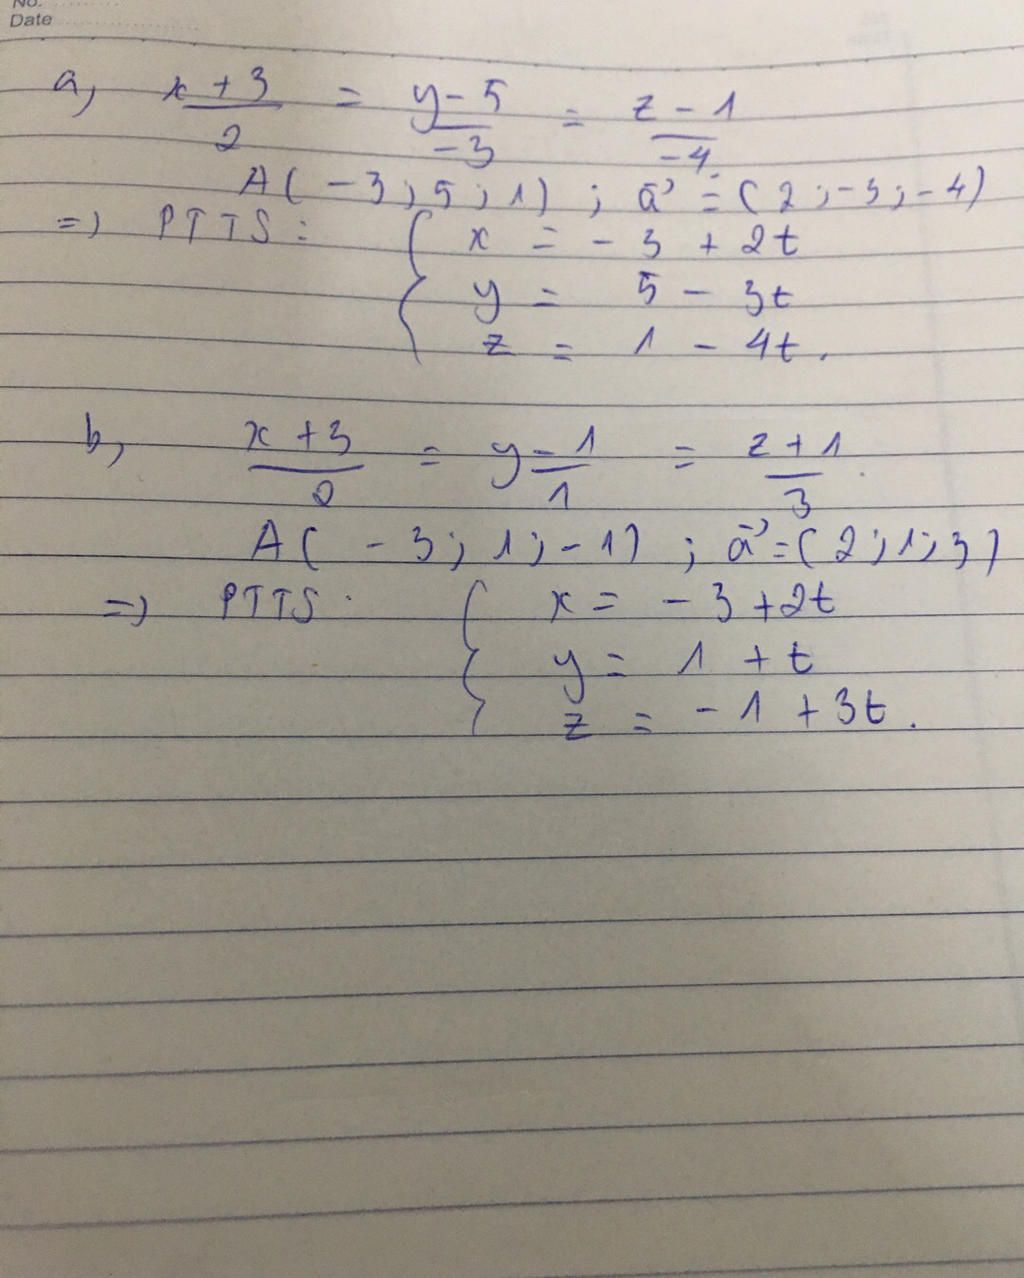 No.
Date
a, x + 3 / 2 = y - 5 / -3 = z - 1 / -4
A( -3 ; 5 ; 1 ) ; a⃗ = ( 2 ; -3 ; -4 )
=> PTTS : { x = - 3 + 2t
y = 5 - 3t
z = 1 - 4t .
b, x + 3 / 2 = y - 1 / 1 = z + 1 / 3
A( - 3 ; 1 ; -1 ) ; a⃗ = ( 2 ; 1 ; 3 )
=> PTTS . { x = - 3 + 2t
y = 1 + t
z = - 1 + 3t .